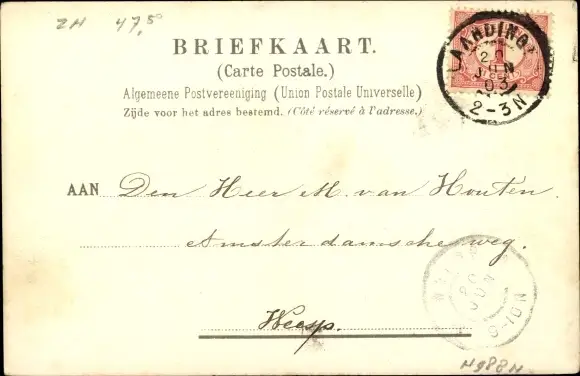 ZH 47,50
BRIEFKAART.
(Carte Postale.)
Algemeene Postvereeniging (Union Postale Universelle)
Zijde voor het adres bestemd. (Côté réservé à l'adresse.)
VLAARDINGEN
JUN
03
2-3N
AAN Den Heer M. van Houten.
Amsterdamsche weg.
Weesp.
WEESP
20
JUN
9-10N